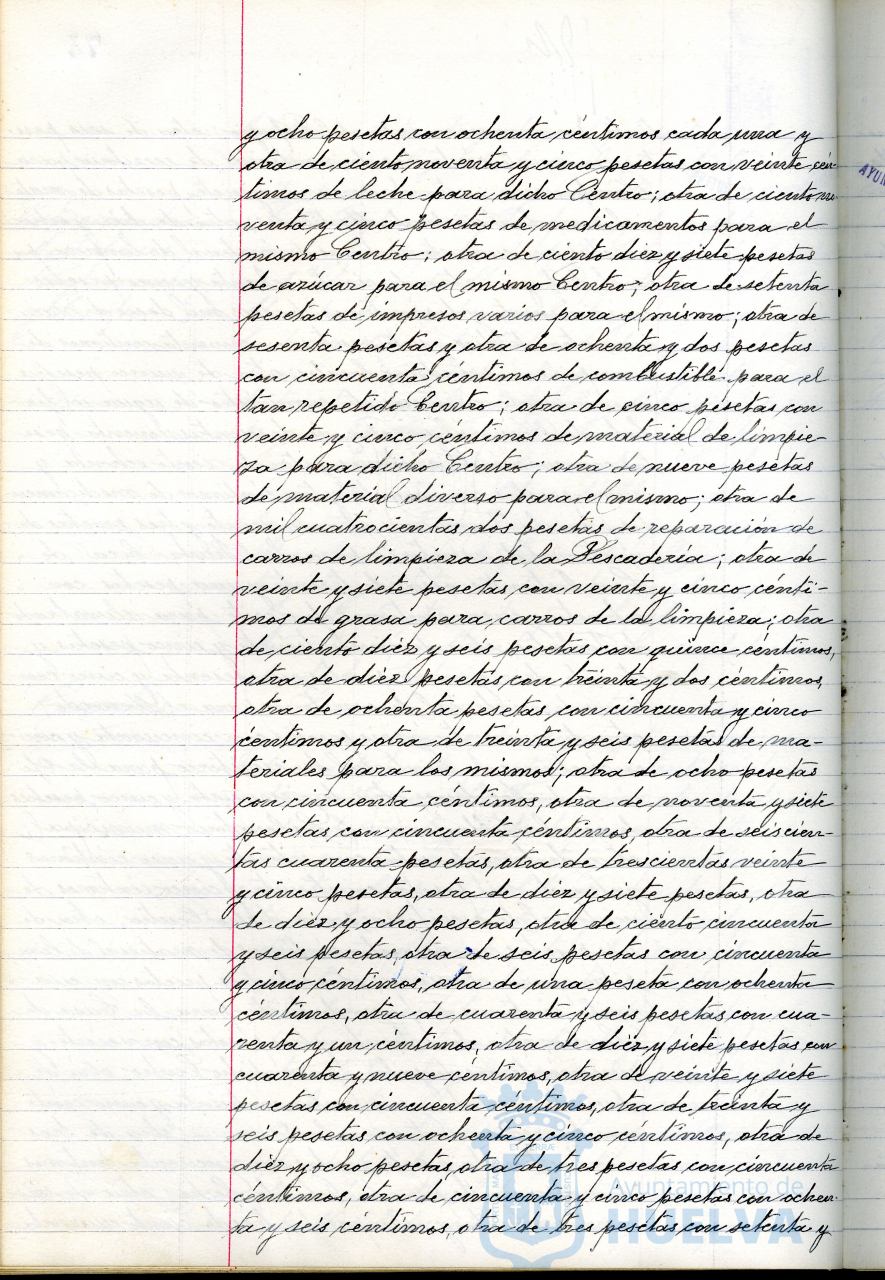 y ocho pesetas con ochenta céntimos cada una y
otra de ciento noventa y cinco pesetas con veinte cén-
timos de leche para dicho Centro; otra de ciento no-
venta y cinco pesetas de medicamentos para el
mismo Centro; otra de ciento diez y siete pesetas
de azúcar para el mismo Centro; otra de setenta
pesetas de impresos varios para el mismo; otra de
sesenta pesetas y otra de ochenta y dos pesetas
con cincuenta céntimos de combustible para el
tan repetido Centro; otra de cinco pesetas con
veinte y cinco céntimos de material de limpie-
za para dicho Centro; otra de nueve pesetas
de material diverso para el mismo; otra de
mil cuatrocientas dos pesetas de reparación de
carros de limpieza de la Pescadería; otra de
veinte y siete pesetas con veinte y cinco cénti-
mos de grasa para carros de la limpieza; otra
de ciento diez y seis pesetas con quince céntimos,
otra de diez pesetas con treinta y dos céntimos,
otra de ochenta pesetas con cincuenta y cinco
céntimos y otra de treinta y seis pesetas de ma-
teriales para los mismos; otra de ocho pesetas
con cincuenta céntimos, otra de noventa y siete
pesetas con cincuenta céntimos, otra de seiscien-
tas cuarenta pesetas, otra de trescientas veinte
y cinco pesetas, otra de diez y siete pesetas, otra
de diez y ocho pesetas, otra de ciento cincuenta
y seis pesetas, otra de seis pesetas con cincuenta
y cinco céntimos, otra de una peseta con ochenta
céntimos, otra de cuarenta y seis pesetas con cua-
renta y un céntimos, otra de diez y siete pesetas con
cuarenta y nueve céntimos, otra de veinte y siete
pesetas con cincuenta céntimos, otra de treinta y
seis pesetas con ochenta y cinco céntimos, otra de
diez y ocho pesetas, otra de tres pesetas con cincuenta
céntimos, otra de cincuenta y cinco pesetas con ochen-
ta y seis céntimos, otra de tres pesetas con setenta y
AYUN
Ayuntamiento de
HUELVA